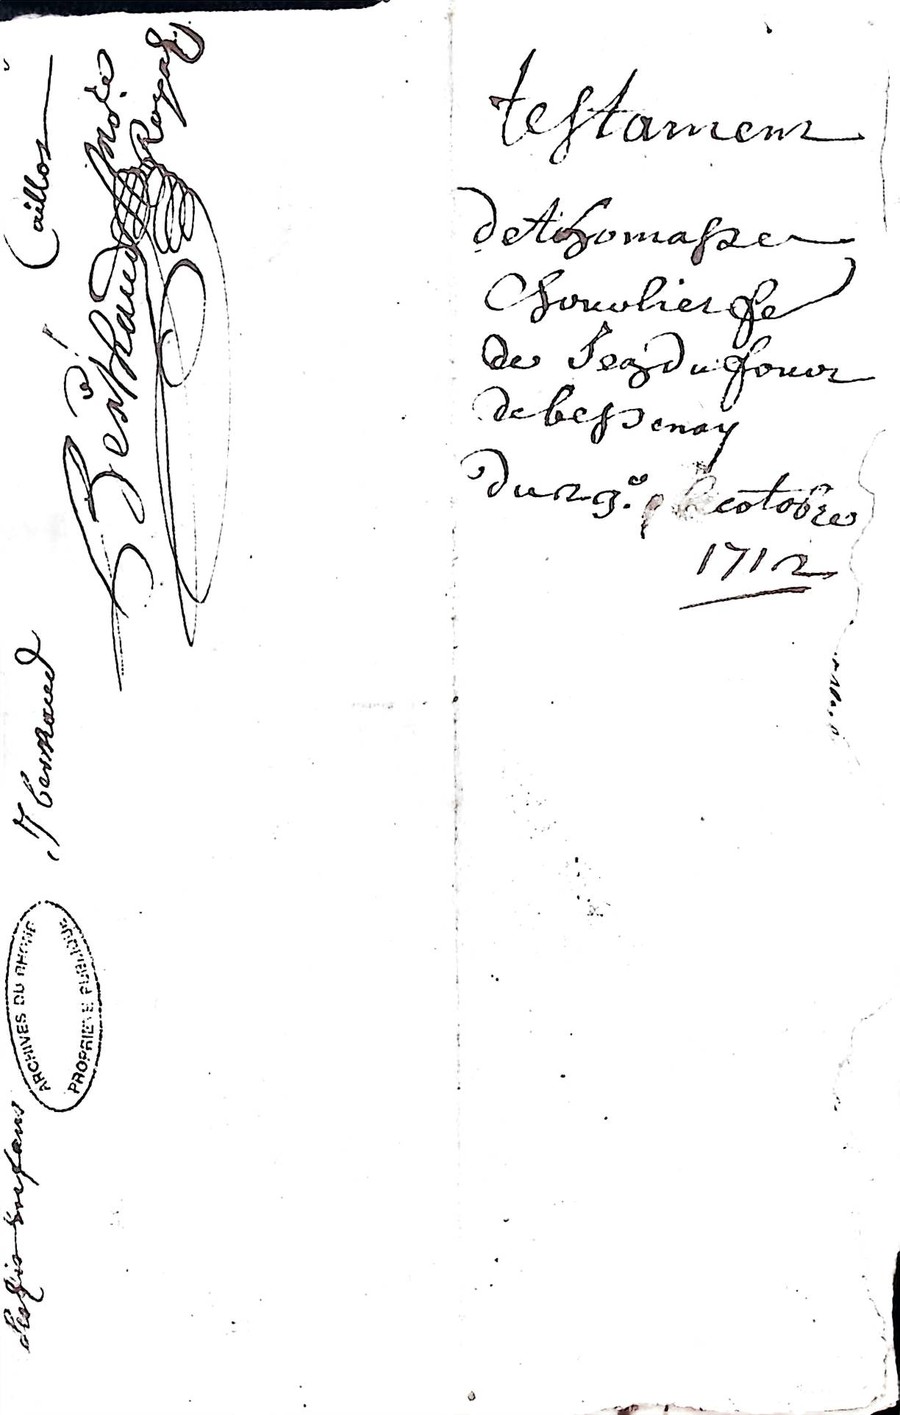 testament
de thomasse
Chovolier fe
de Jeaz du four
de bessenay
du 29.e octobre
1712
Caillos
Berthaud no.re Royal
J bernoud
ARCHIVES DU RHONE
PROPRIETE PUBLIQUE